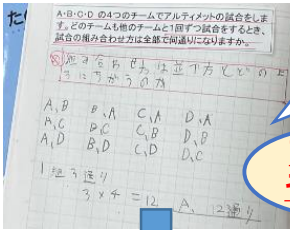 A・B・C・D の4つのチームでアルティメットの試合をしま
す。どのチームも他のチームと1回ずつ試合をするとき、
試合の組み合わせ方は全部で何通りになりますか。
組み合わせ方は並べ方とどのよ
うにちがうのか
A、B B、A C、A D、A
A、C B、C C、B D、B
A、D B、D C、D D、C
1組3通り
3×4=12 A、12通り